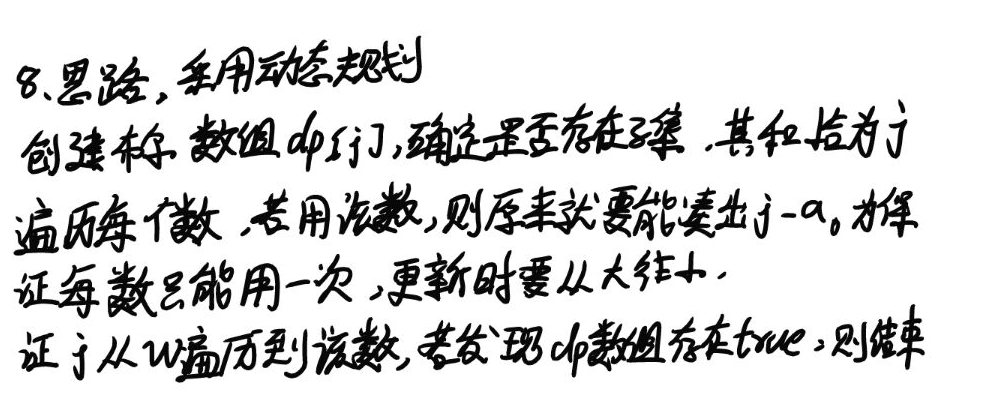 8、思路,采用动态规划
创建标 数组dp[j],确定是否存在子集,其和恰为j
遍历每个数,若用该数,则原来就要能凑出j-a。为保
证每数只能用一次,更新时要从大往小.
证j从w遍历到该数,若发现dp数组存在true,则结束